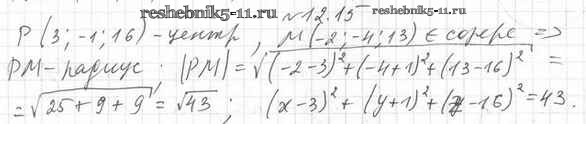 reshebnik5-11.ru
№12.15
P(3;-1;16) - центр, M(-2;-4;13) ∈ сфере =>
PM - радиус; |PM| = √((-2-3)²+(-4+1)²+(13-16)²) =
= √(25+9+9) = √43; (x-3)²+(y+1)²+(z-16)²=43.
reshebnik5-11.ru